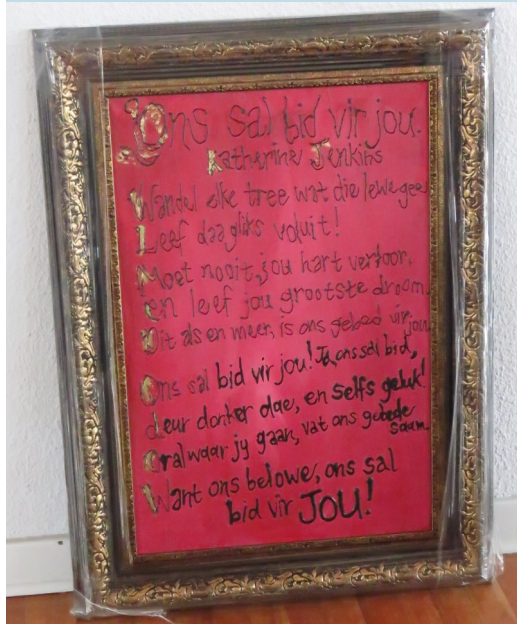 Ons sal bid vir jou.
Katherine Jenkins
Wandel elke tree wat die lewe gee
Leef daagliks voluit!
Moet nooit jou hart verloor,
en leef jou grootste droom.
Dit als en meer, is ons gebed vir jou
Ons sal bid vir jou! Ja, ons sal bid,
deur donker dae, en selfs geluk!
Oral waar jy gaan, vat ons gebede
saam.
Want ons belowe, ons sal
bid vir JOU!